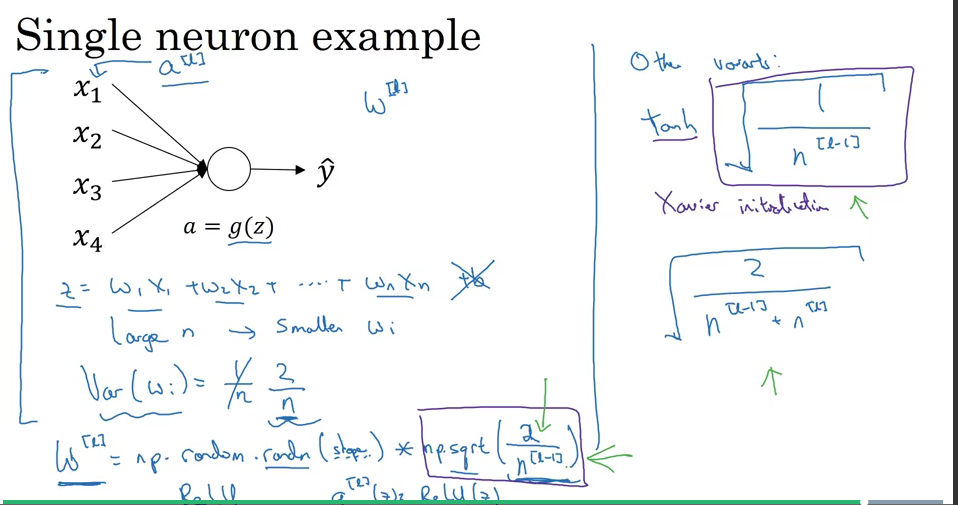 Single neuron example
a^[l]
x₁
x₂
x₃
x₄
ŷ
a = g(z)
w^[l]
z = w₁x₁ + w₂x₂ + ..... + wₙxₙ +b
Large n → Smaller wᵢ
Var(wᵢ) = 1/n 2/n
W^[l] = np.random.randn(shape) * np.sqrt(2/n^[l-1])
ReLU g^[l](z) = ReLU(z)
Other variants:
tanh √(1/n^[l-1])
Xavier initialization
√(2/(n^[l-1] + n^[l]))